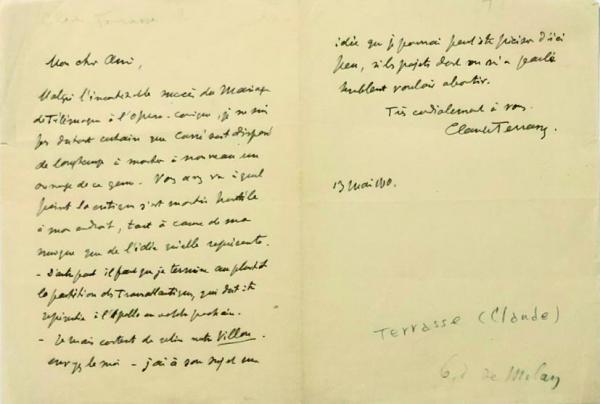 Mon cher Ami,
Malgré l'incontestable succès du Mariage
de Télémaque à l'Opéra-comique, je ne suis
pas du tout certain que Carré soit disposé
de longtemps à monter à nouveau un
ouvrage de ce genre. Vous avez vu à quel
point la critique s'est montrée hostile
à mon endroit, tant à cause de ma
musique que de l'idée qu'elle représente.
- D'autre part il faut que je termine au plus tôt
la partition des Transatlantiques qui doit être
représentée à l'Apollo en octobre prochain.
- Je serais content de relire votre Villon.
envoyez le moi - j'ai à son sujet une
idée que je pourrai peut-être préciser d'ici
peu, si les projets dont on m'a parlé
semblent vouloir aboutir.
Très cordialement à vous.
Claude Terrasse.
13 Mai 1910.
Terrasse (Claude)
de Milan